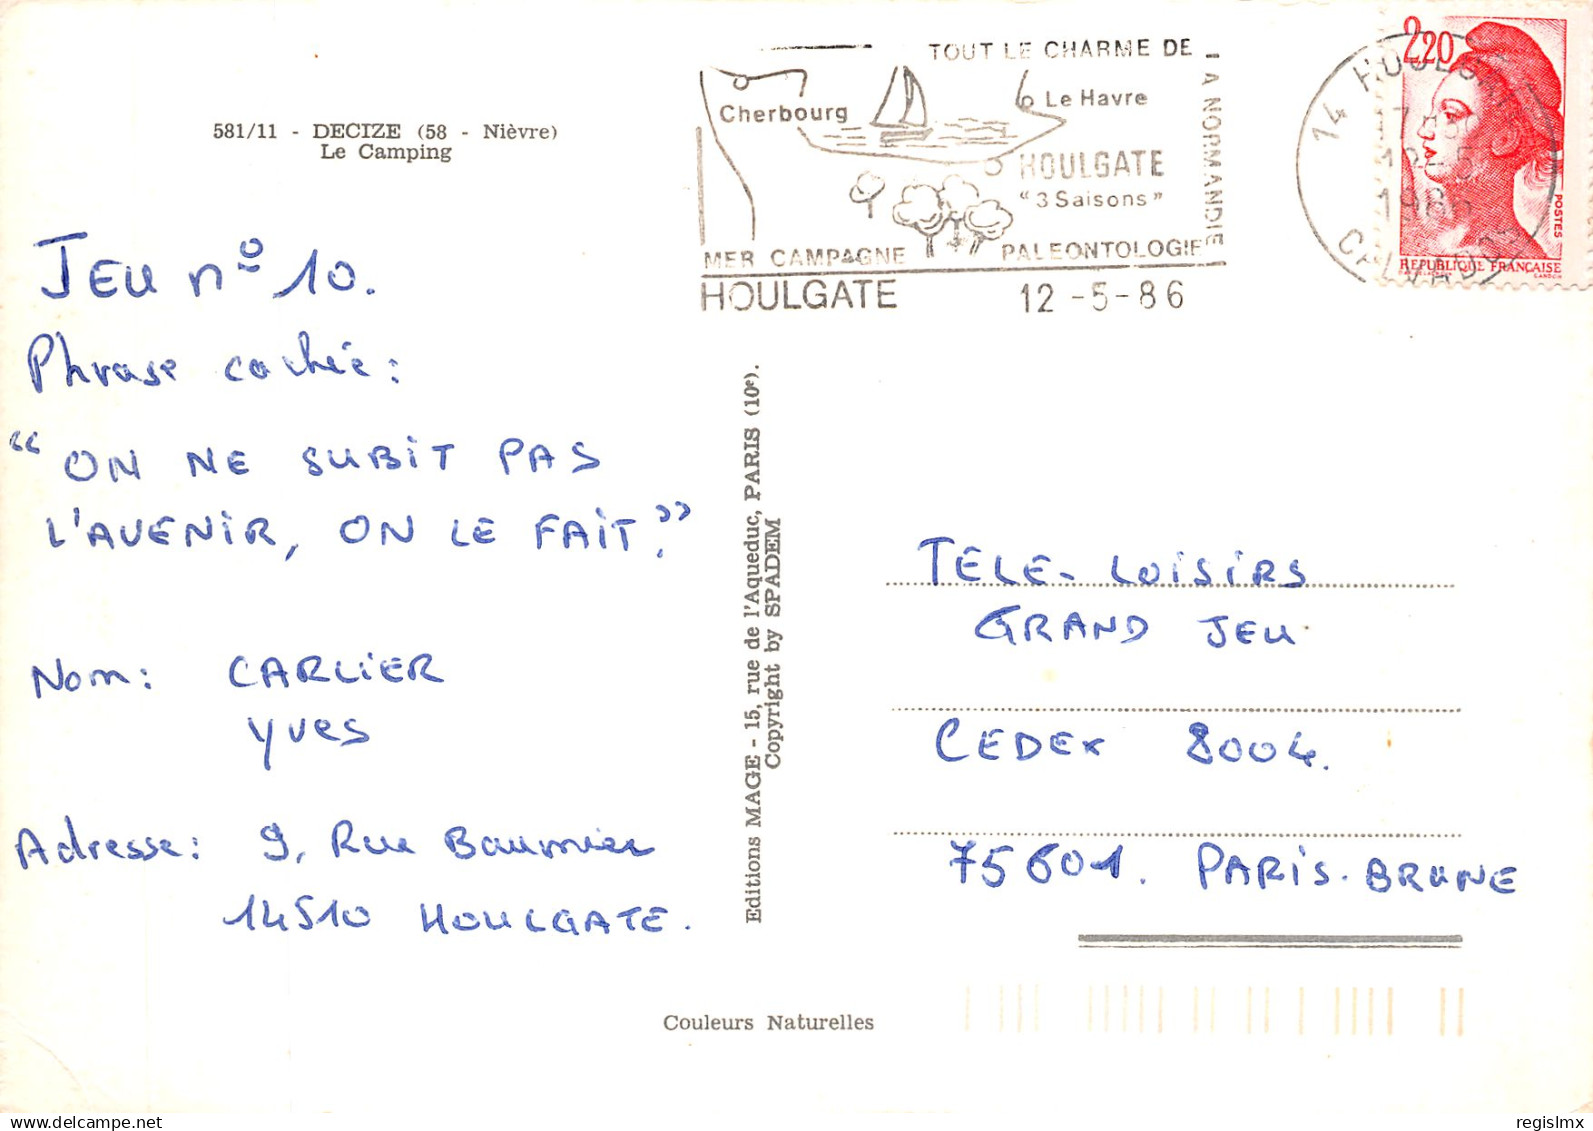 581/11 - DECIZE (58 - Nièvre)
Le Camping
TOUT LE CHARME DE
LA NORMANDIE
Cherbourg
Le Havre
HOULGATE
"3 Saisons"
MER CAMPAGNE PALEONTOLOGIE
HOULGATE 12 -5-86
14 HOULGATE
CALVADOS
2,20
POSTES
REPUBLIQUE FRANÇAISE
JEU n° 10.
Phrase cachée :
“ON NE SUBIT PAS
L'AVENIR, ON LE FAIT.”
Nom : CARLIER
Yves
Adresse : 9, Rue Baumier
14510 HOULGATE.
Editions MAGE - 15, rue de l'Aqueduc, PARIS (10e).
Copyright by SPADEM
TELE-LOISIRS
GRAND JEU
CEDEX 8004.
75601. PARIS-BRUNE
Couleurs Naturelles
delcampe.net
regislmx